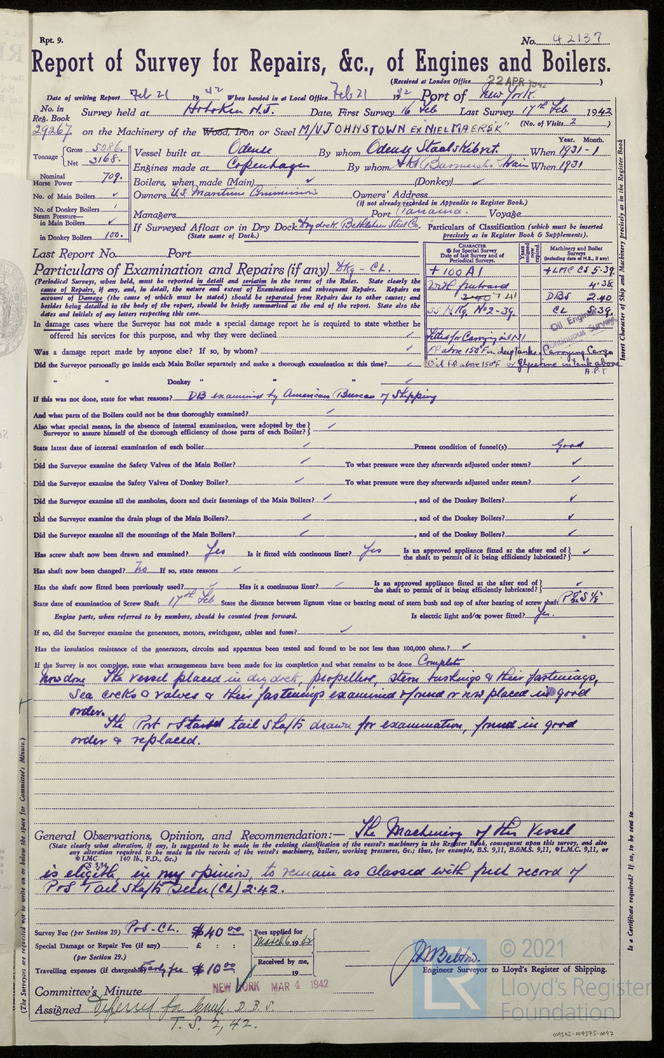 Rpt. 9.
No. 42137
Report of Survey for Repairs, &c., of Engines and Boilers.
(Received at London Office 22 APR 1942)
Date of writing Report Feb 21 1942 When handed in at Local Office Feb 21 1942 Port of New York.
No. in Reg. Book 29267 Survey held at Hoboken N.J. Date, First Survey 16 Feb Last Survey 17th Feb 1942
(No. of Visits 2)
on the Machinery of the Wood, Iron or Steel M/V JOHNSTOWN EX NIEL MAERSK"
Tonnage Gross 5086. Net 3168.
Vessel built at Odense By whom Odense Staalskibsvft. When 1931-1
Year. Month.
Engines made at Copenhagen By whom When 1931
Nominal Horse Power 709.
Boilers, when made (Main) (Donkey)
No. of Main Boilers
Owners U.S. Maritime Commission Owners' Address
(if not already recorded in Appendix to Register Book.)
No. of Donkey Boilers 1
Managers Port Panama. Voyage
Steam Pressure— in Main Boilers
in Donkey Boilers 100.
If Surveyed Afloat or in Dry Dock Dry dock, Bethlehem Steel Co.
(State name of Dock.)
Particulars of Classification (which must be inserted precisely as in Register Book & Supplements).
Last Report No. Port
Particulars of Examination and Repairs (if any) Dkg - CL.
(Periodical Surveys, when held, must be reported in detail and seriatim in the terms of the Rules. State clearly the
cause of Repairs, if any, and, in detail, the nature and extent of Examinations and subsequent Repairs. Repairs on
account of Damage (the cause of which must be stated) should be separated from Repairs due to other causes; and
besides being detailed in the body of the report, should be briefly summarised at the end of the report. State also the
dates and initials of any letters respecting this case.
CHARACTER for Special Survey Date of last Survey and of Periodical Surveys.
Machinery and Boiler Surveys (including date of N.B., if any)
+ 100 A1
+ LMC CS 5.39.
With freeboard
4.38
DBS 2.40
SS No 2-39.
CL 5.39
Oil Engine
Continuous Survey
Carrying Cargo
In damage cases where the Surveyor has not made a special damage report he is required to state whether he
offered his services for this purpose, and why they were declined
Was a damage report made by anyone else? If so, by whom?
Did the Surveyor personally go inside each Main Boiler separately and make a thorough examination at this time?
" " Donkey " "
If this was not done, state for what reasons? DB examined by American Bureau of Shipping
And what parts of the Boilers could not be thus thoroughly examined?
Also what special means, in the absence of internal examination, were adopted by the
Surveyor to assure himself of the thorough efficiency of those parts of each Boiler?
State latest date of internal examination of each boiler Present condition of funnel(s) Good
Did the Surveyor examine the Safety Valves of the Main Boiler? To what pressure were they afterwards adjusted under steam?
Did the Surveyor examine the Safety Valves of Donkey Boiler? To what pressure were they afterwards adjusted under steam?
Did the Surveyor examine all the manholes, doors and their fastenings of the Main Boilers? , and of the Donkey Boilers?
Did the Surveyor examine the drain plugs of the Main Boilers? , and of the Donkey Boilers?
Did the Surveyor examine all the mountings of the Main Boilers? , and of the Donkey Boilers?
Has screw shaft now been drawn and examined? Yes Is it fitted with continuous liner? Yes Is an approved appliance fitted at the after end of the shaft to permit of it being efficiently lubricated?
Has shaft now been changed? No If so, state reasons
Has the shaft now fitted been previously used? Has it a continuous liner? Is an approved appliance fitted at the after end of the shaft to permit of it being efficiently lubricated?
State date of examination of Screw Shaft 17th Feb State the distance between lignum vitæ or bearing metal of stern bush and top of after bearing of screw shaft
Engine parts, when referred to by numbers, should be counted from forward. Is electric light and/or power fitted? Yes.
If so, did the Surveyor examine the generators, motors, switchgear, cables and fuses?
Has the insulation resistance of the generators, circuits and apparatus been tested and found to be not less than 100,000 ohms?
If the Survey is not complete, state what arrangements have been made for its completion and what remains to be done Complete
Now done The vessel placed in dry dock, propellers, stern bushings & their fastenings,
Sea cocks & valves & their fastenings examined & found or now placed in good
order.
The Port & Starbd tail shafts drawn for examination, found in good
order & replaced.
General Observations, Opinion, and Recommendation:— The Machinery of this Vessel
(State clearly what alteration, if any, is suggested to be made in the existing classification of the vessel's machinery in the Register Book, consequent upon this survey, and also
any alteration required to be made in the records of the vessel's machinery, boilers, working pressures, &c.; thus, for example, B.S. 9,11, B.&M.S. 9,11, L.M.C. 9,11, or
LMC 140 lb., F.D., &c.)
is eligible in my opinion, to remain as classed with fresh record of
P&S Tail shafts seen (CL) 2.42.
Survey Fee (per Section 29) P&S-CL. $40.00
Special Damage or Repair Fee (if any) £ : :
(per Section 29.)
Travelling expenses (if chargeable) $10.00
Fees applied for March 6 1942
Received by me, 19
Engineer Surveyor to Lloyd's Register of Shipping.
Committee's Minute NEW YORK MAR 4 1942
Assigned Deferred for D.B.S.
T.S. 2,42.
Insert Character of Ship and Machinery precisely as in the Register Book
Is a Certificate required? If so, to be sent to
(The Surveyors are requested not to write on or below the space for Committee's Minute.)
© 2021
Lloyd's Register
Foundation
LR